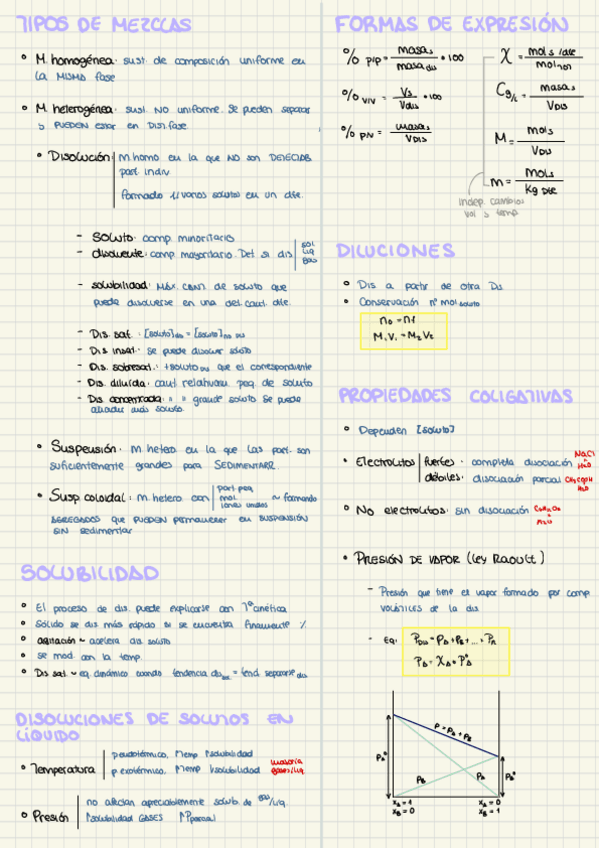 TIPOS DE MEZCLAS
• M homogénea: sust. de composición uniforme en
la MISMA fase
• M heterogénea: sust. NO uniforme. Se pueden separar
y PUEDEN estar en Dist. fase
• Disolución: M homo en la que NO son DETECTAB
part. indiv.
Formado x/varios solutos en un dte.
- SOLUTO: comp. minoritario
- disolvente: comp. mayoritario. Det si dis. | sol liq gas
- solubilidad: MÁX. cant. de soluto que
puede disolverse en una det. cant. dte.
- Dis. sat.: [soluto]dis = [soluto] no dis
- Dis. insat.: se puede disolver soluto
- Dis. sobresat.: +soluto dis que el correspondiente
- Dis. diluida: cant relativam. peq de soluto
- Dis. concentrada: " " grande soluto. Se puede
añadir más soluto
• Suspensión: M hetero en la que las part. son
suficientemente grandes para SEDIMENTAR.
• Susp coloidal: M hetero con | part. peq mol. iones unidos ~ formando
AGREGADOS que PUEDEN permanecer en SUSPENSIÓN
SIN sedimentar
SOLUBILIDAD
• El proceso de dis. puede explicarse con Tª cinética
• Sólido se dis más rápido si se encuentra finamente %
• agitación ~ acelera dis soluto
• se mod. con la temp.
• Dis sat. ~ eq. dinámico cuando tendencia dis = tend. separarse dis
DISOLUCIONES DE SOLUTOS EN
LÍQUIDO
• Temperatura | p endotérmico, ↑temp ↑solubilidad
p exotérmico, ↑temp ↓solubilidad mayoría gases/liq.
• Presión | no afectan apreciablemente solub. de sol/liq.
↑solubilidad GASES ↑P parcial
FORMAS DE EXPRESIÓN
% P/P = masa s / masa dis • 100
% V/V = Vs / Vdis • 100
% P/V = masa s / V DIS
χ = mol s / dte / mol tot
C g/L = masa s / V DIS
M = mol s / V DIS
m = mol s / kg Dte
indep. cambios
vol y temp
DILUCIONES
• Dis a partir de otra Dis
• Conservación nº mol soluto
n0 = nf
M1V1 = M2V2
PROPIEDADES COLIGATIVAS
• Dependen [soluto]
• Electrolitos | fuertes: completa disociación NaCl H2O
débiles: disociación parcial CH3COOH H2O
• No electrolitos: sin disociación
• PRESIÓN DE VAPOR (Ley RAOULT)
- Presión que tiene el vapor formado por comp.
VOLÁTILES de la dis
- Eq: PDIS = PA + PB + ... + Pn
PA = XA • P°A
P = PA + PB
PA°
PB
PA
PB°
XA = 1
XB = 0
XA = 0
XB = 1